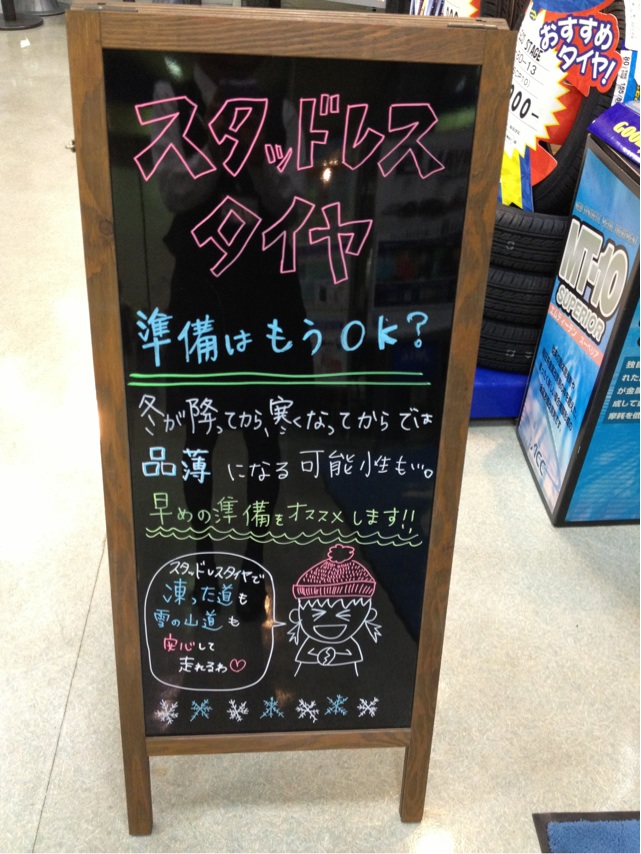 スタッドレス
タイヤ
準備はもうOK?
冬が降ってから、寒くなってからでは
品薄になる可能性も…。
早めの準備をオススメします!!
スタッドレスタイヤで
凍った道も
雪の山道も
安心して
走れるわ♡
おすすめ
タイヤ!
STAGE
MT-10
SUPERIOR
エムティーテン スーペリア